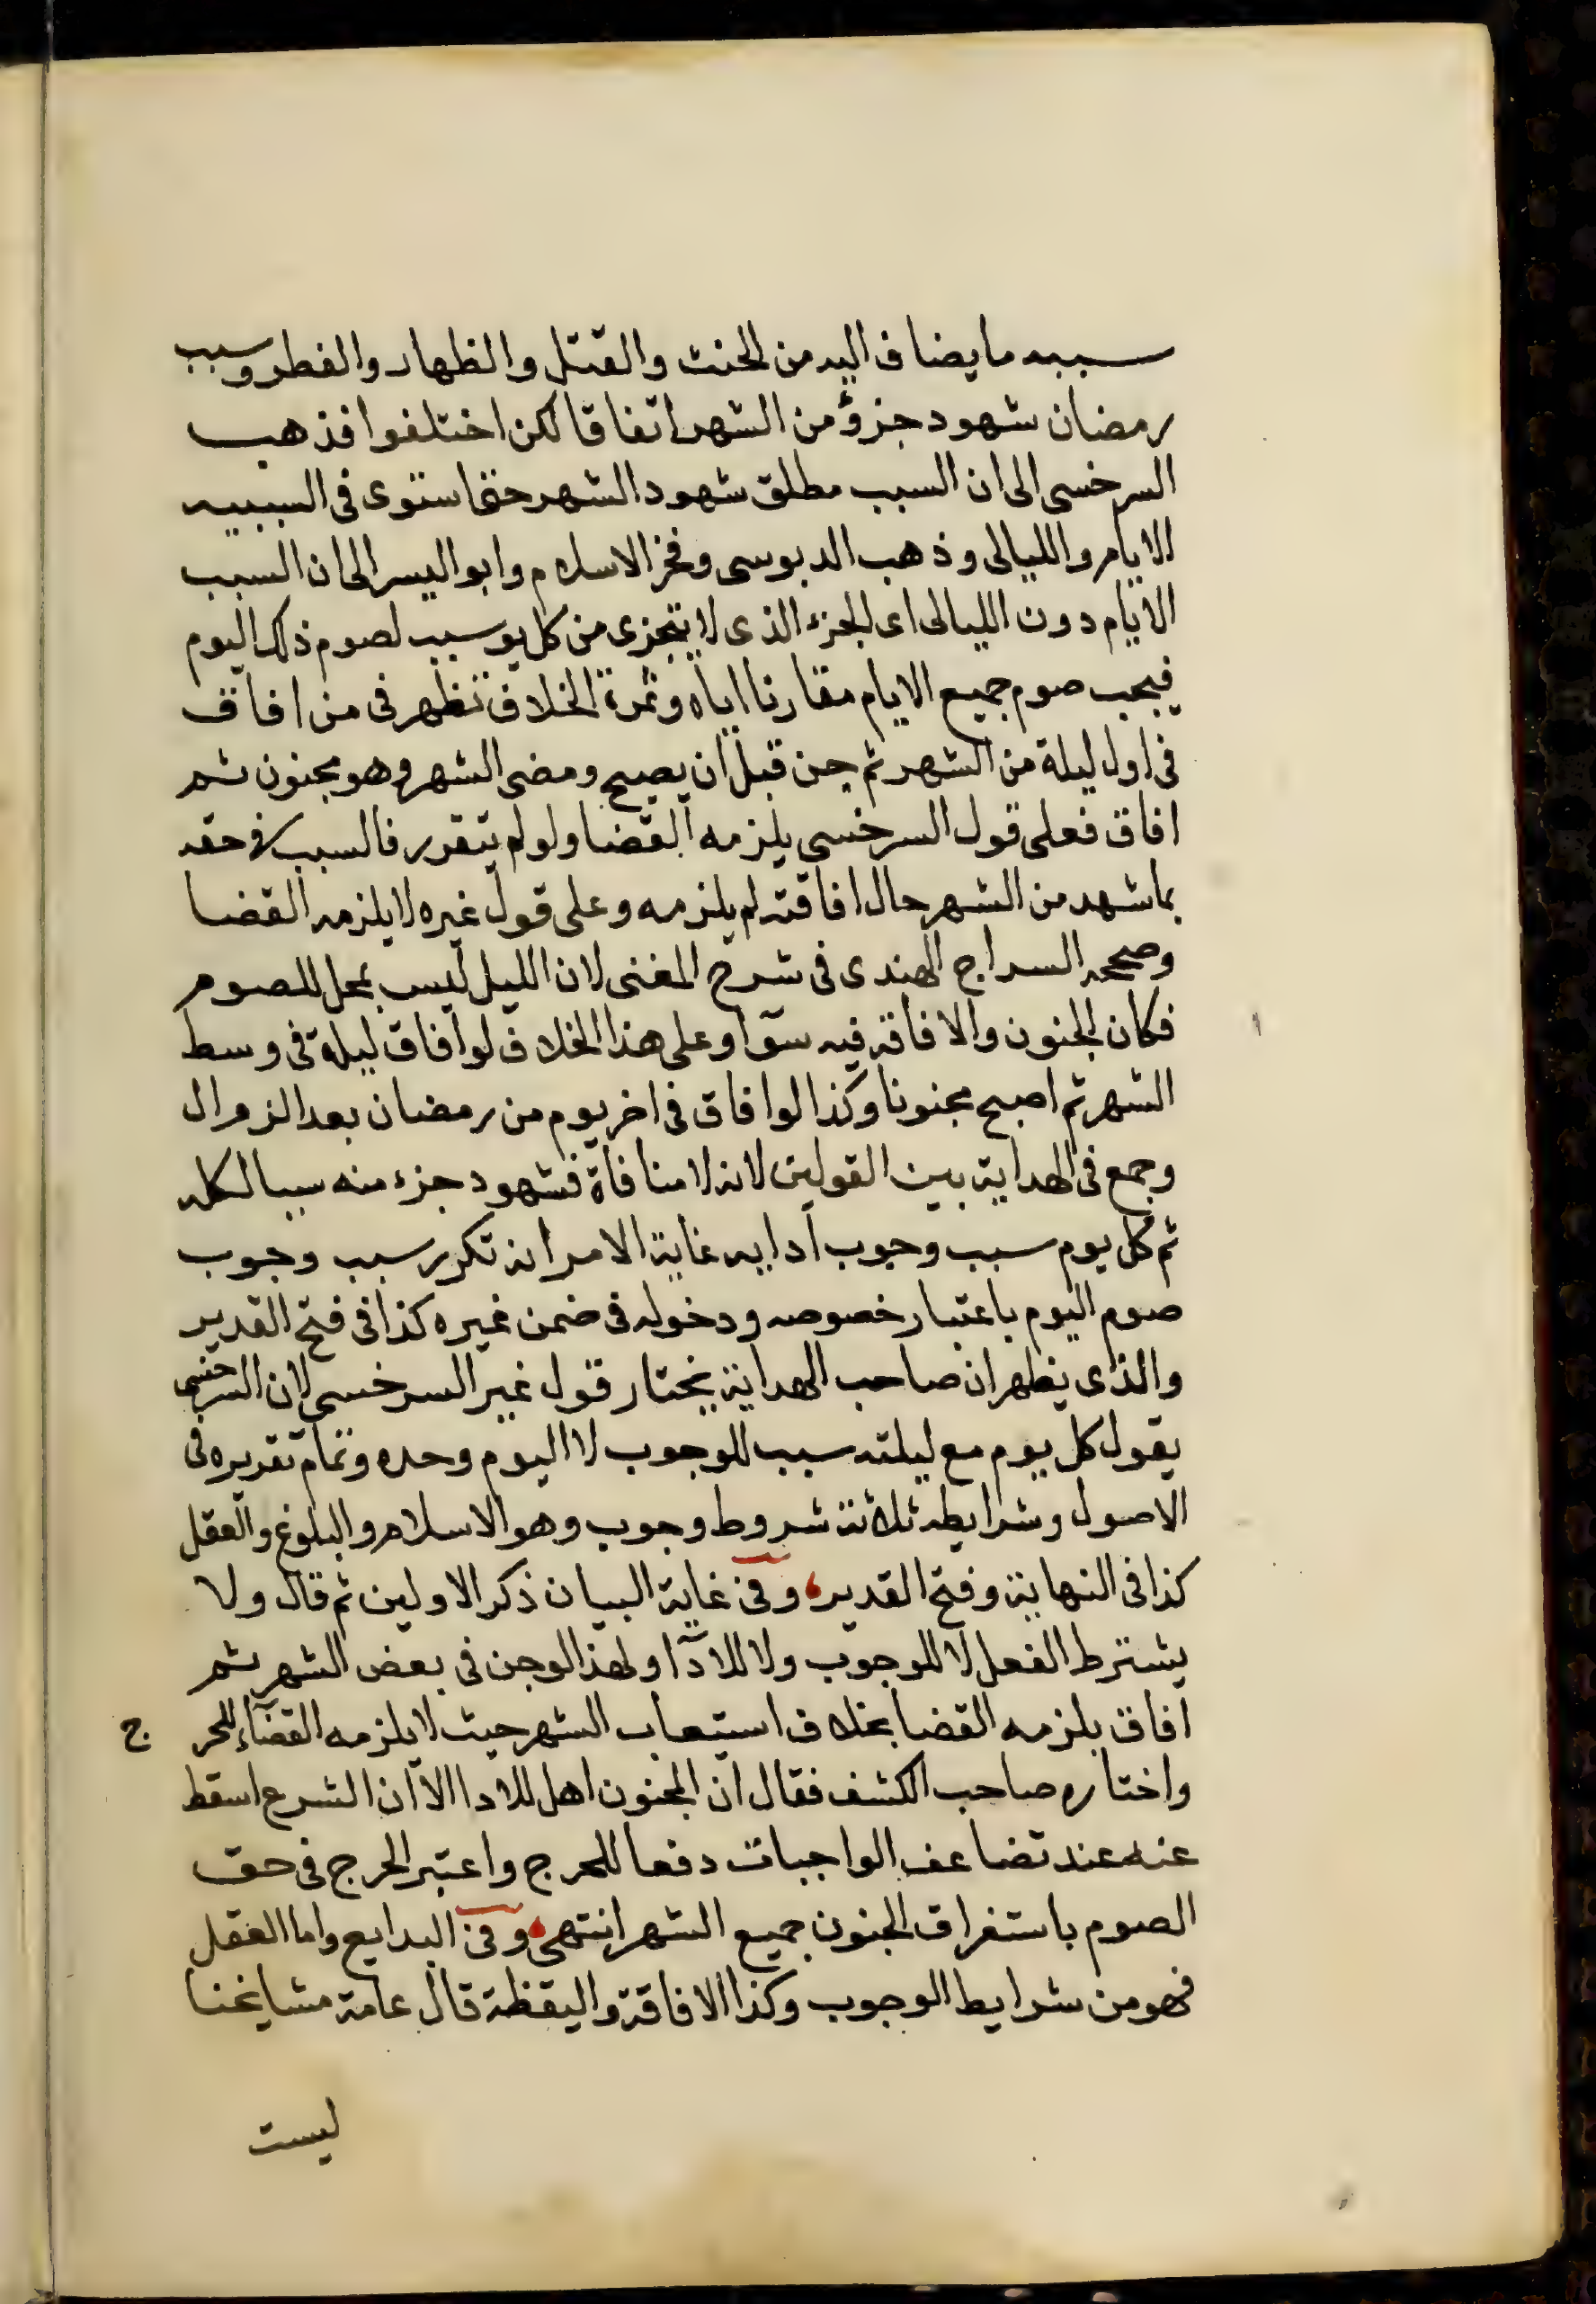 سببه ما يضاف اليه من الحنث والقتل والظهار والفطر وسبب
رمضان شهود جزؤ من الشهر اتفاقا لكن اختلفوا فذهب
السرخسى الى ان السبب مطلق شهود الشهر حتى استوى فى السببيه
الايام والليالى وذهب الدبوسى وفخر الاسلام وابو اليسر الى ان السبب
الايام دون الليالى اى الجزء الذى لا يتجزى من كل يو سبب لصوم ذلك اليوم
فيجب صوم جميع الايام مقارنا اياه وثمرة الخلاف تظهر فى من افاق
فى اول ليلة من الشهر ثم جن قبل ان يصبح ومضى الشهر وهو مجنون ثم
افاق فعلى قول السرخسى يلزمه القضا ولو لم يتقرر فالسبب فى حقه
بما شهد من الشهر حال افاقته لم يلزمه وعلى قول غيره لا يلزمه القضا
وصححه السراج الهندى فى شرح المغنى لان الليل ليس بمحل للصوم
فكان الجنون والافاقه فيه سوآ وعلى هذا الخلاف لو افاق ليلة فى وسط
الشهر ثم اصبح مجنونا وكذا لو افاق فى اخر يوم من رمضان بعد الزوال
وجمع فى الهداية بين القولين لانه لا منافاة فشهود جزء منه سببا لكله
ثم كل يوم سبب وجوب ادايه غاية الامر انه تكرر سبب وجوب
صوم اليوم باعتبار خصوصه ودخوله فى ضمن غيره كذا فى فتح القدير
والذى يظهر ان صاحب الهداية يختار قول غير السرخسى لان السرخسى
يقول كل يوم مع ليلته سبب للوجوب لا اليوم وحده وتمام تقديره فى
الاصول وشرايطه ثلاثة شروط وجوب وهو الاسلام والبلوغ والعقل
كذا فى النهاية وفتح القدير، وفى غاية البيان ذكر الاولين ثم قال ولا
يشترط الفعل لا للوجوب ولا للادآ ولهذا لو جن فى بعض الشهر ثم
افاق يلزمه القضا بخلاف استيعاب الشهر حيث لا يلزمه القضآء للحر ج
واختاره صاحب الكشف فقال ان المجنون اهل للادا الا ان الشرع اسقط
عنه عند تضاعف الواجبات دفعا للحرج واعتبر الحرج فى حق
الصوم باستغراق الجنون جميع الشهر انتهى، وفى البدايع واما العقل
فهو من شرايط الوجوب وكذا الافاقة واليقظة قال عامة مشايخنا
ليست